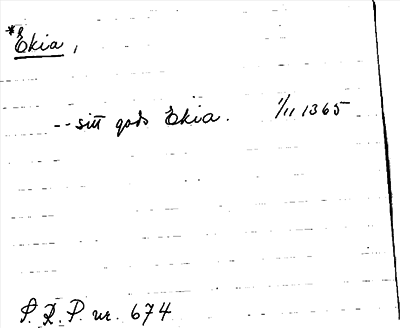 *Ekia,
-- sitt gods Ekia. 1/11 1365
P. R. P. nr. 674